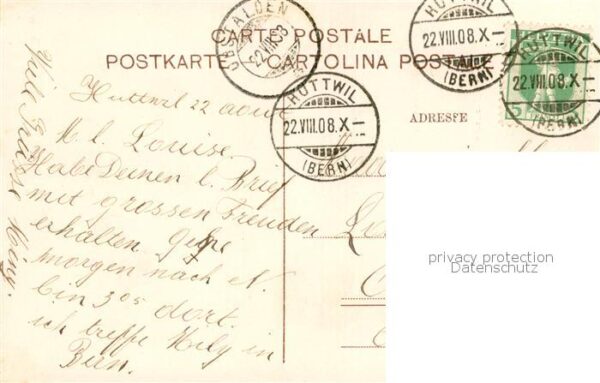 CARTE POSTALE
POSTKARTE - CARTOLINA POSTALE
22.VIII.08
HUTTWIL
22.VIII.08.X-
(BERN)
HUTTWIL
22.VIII.08.X-
(BERN)
HUTTWIL
22.VIII.08.X-
(BERN)
5
ADRESSE
Huttwil 22 août
M. l. Louise.
Habe Deinen l. Brief
mit grossen Freuden
erhalten Gehe
morgen nach N.
bin 3 05 dort.
ich treffe Hely in
Bern.
Viele Grüsse
privacy protection
Datenschutz